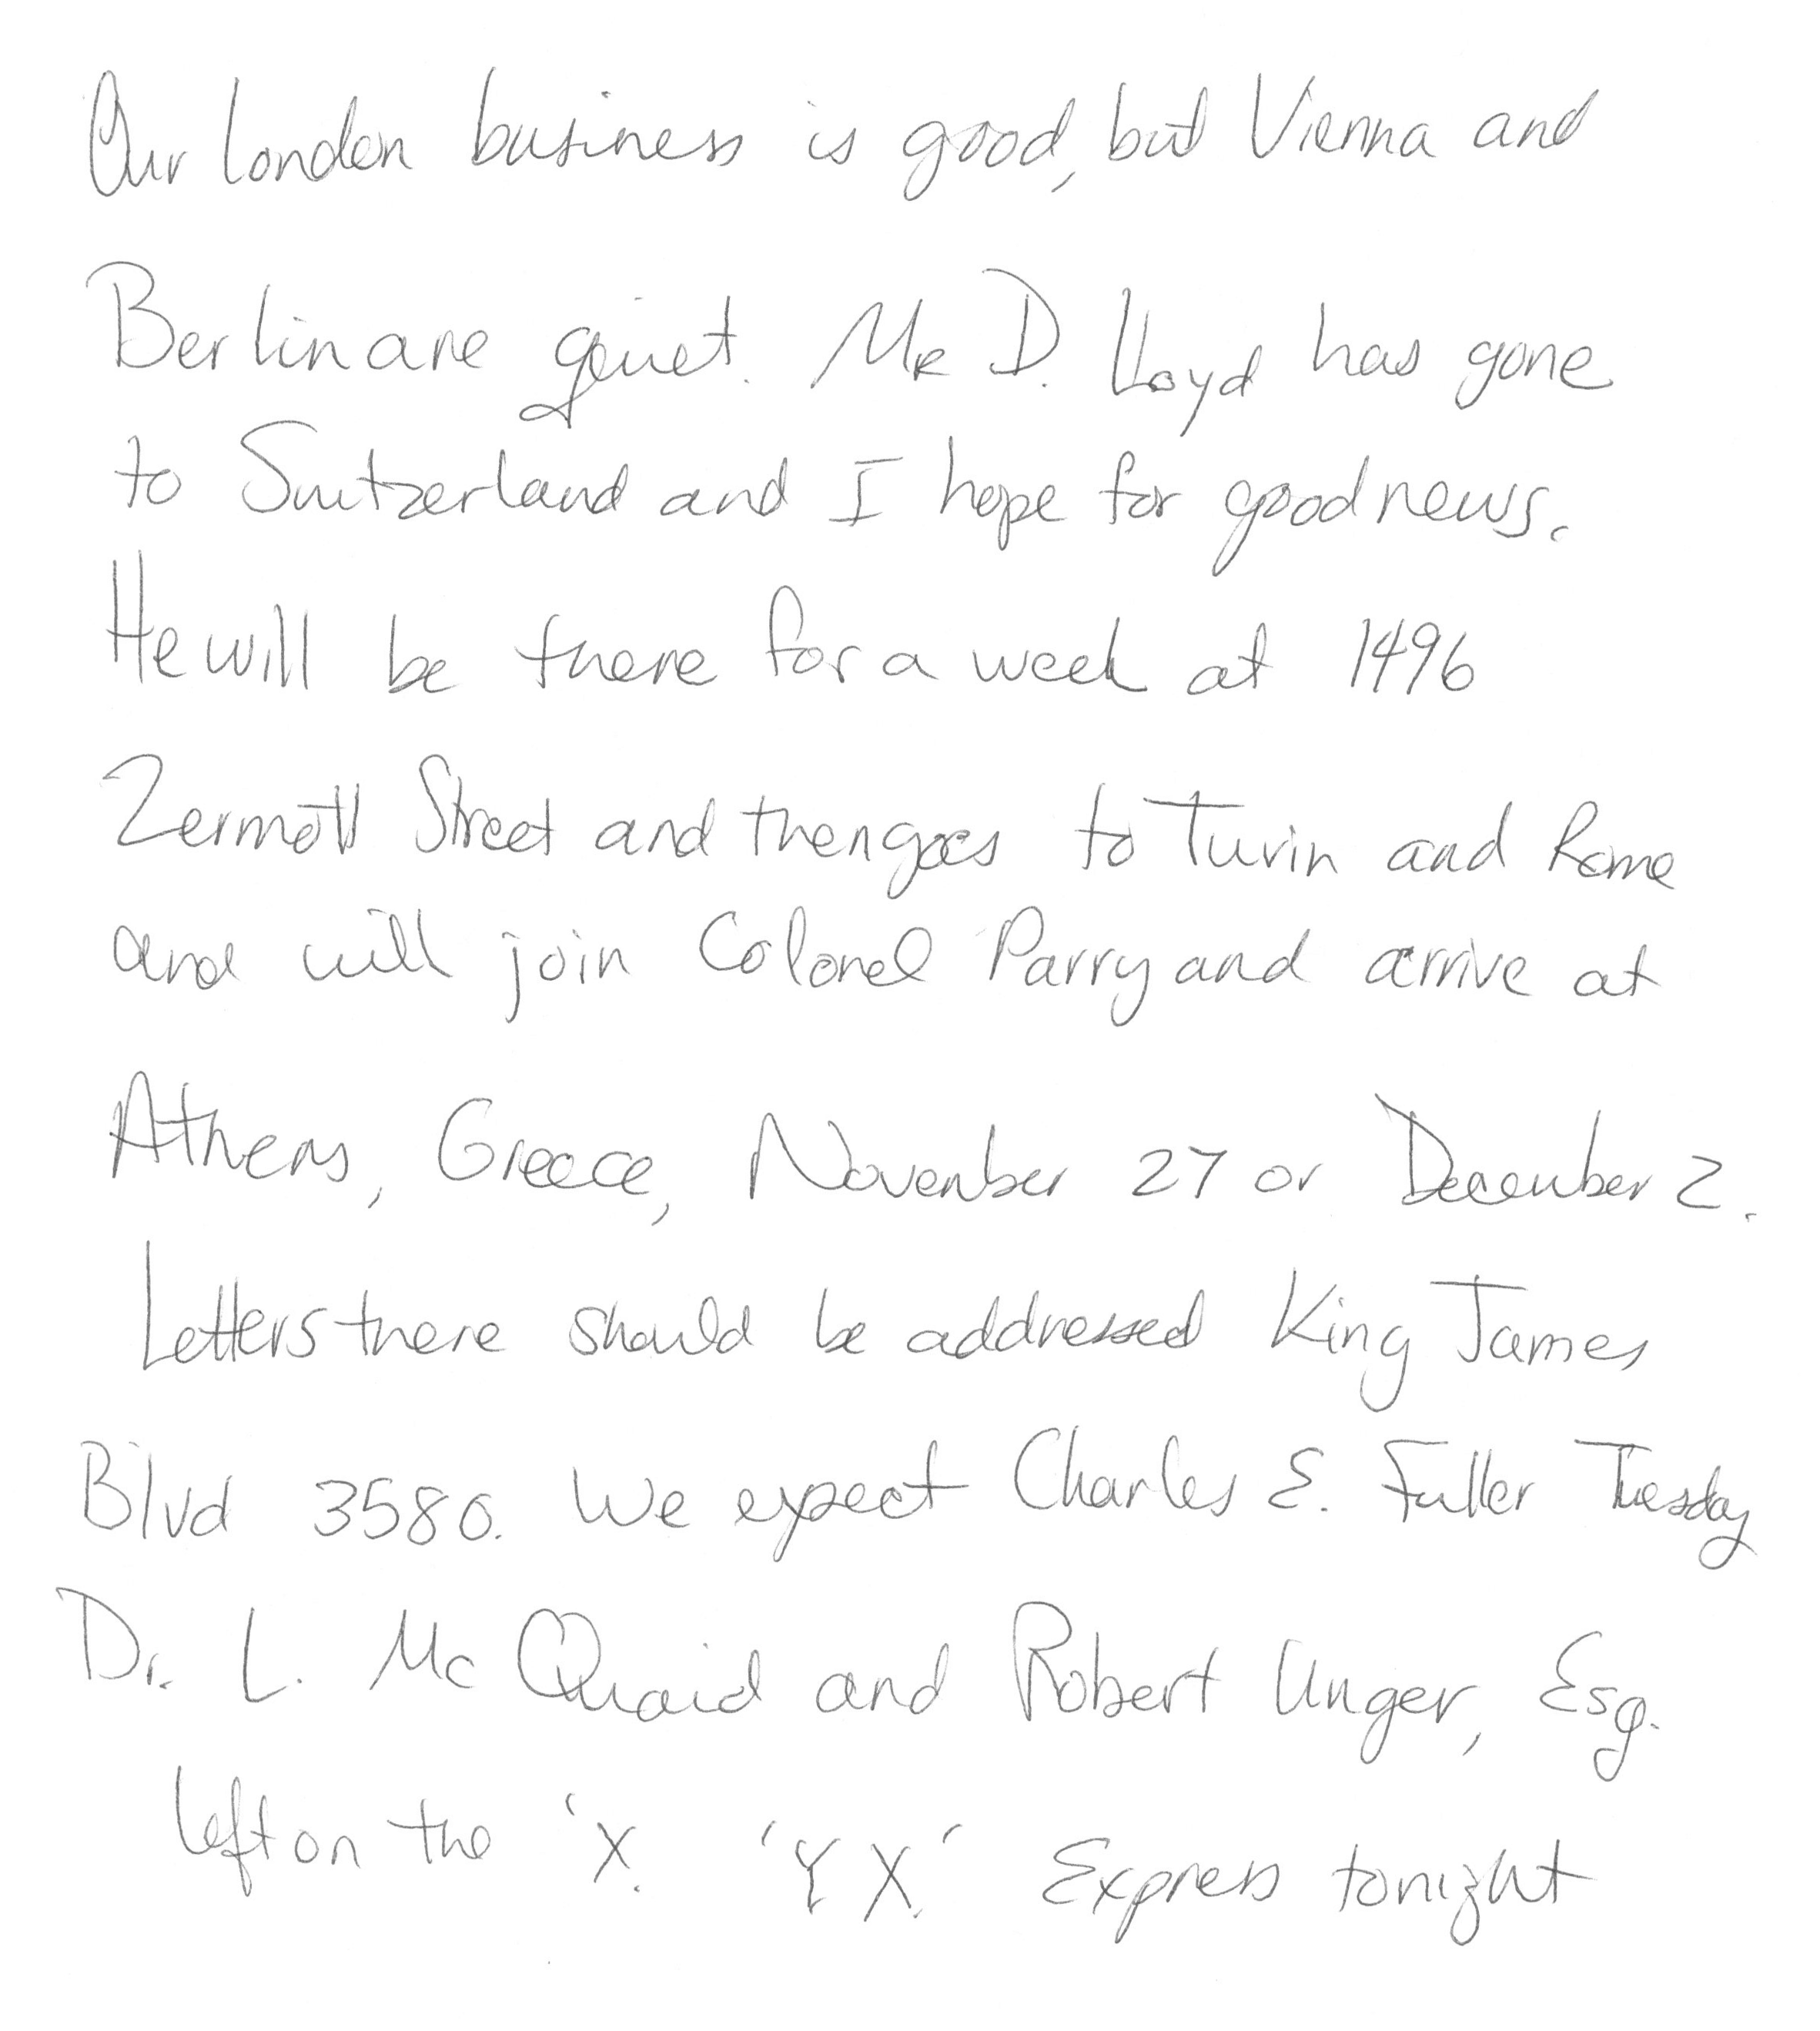 Our London business is good, but Vienna and
Berlin are quiet. Mr D. Lloyd has gone
to Switzerland and I hope for good news.
He will be there for a week at 1496
Zermott Street and then goes to Turin and Rome
and will join Colonel Parry and arrive at
Athens, Greece, November 27 or December 2.
Letters there should be addressed King James
Blvd 3580. We expect Charles E. Fuller Tuesday
Dr. L. Mc Quaid and Robert Unger, Esq.
left on the 'X. 'Y X.' Express tonight